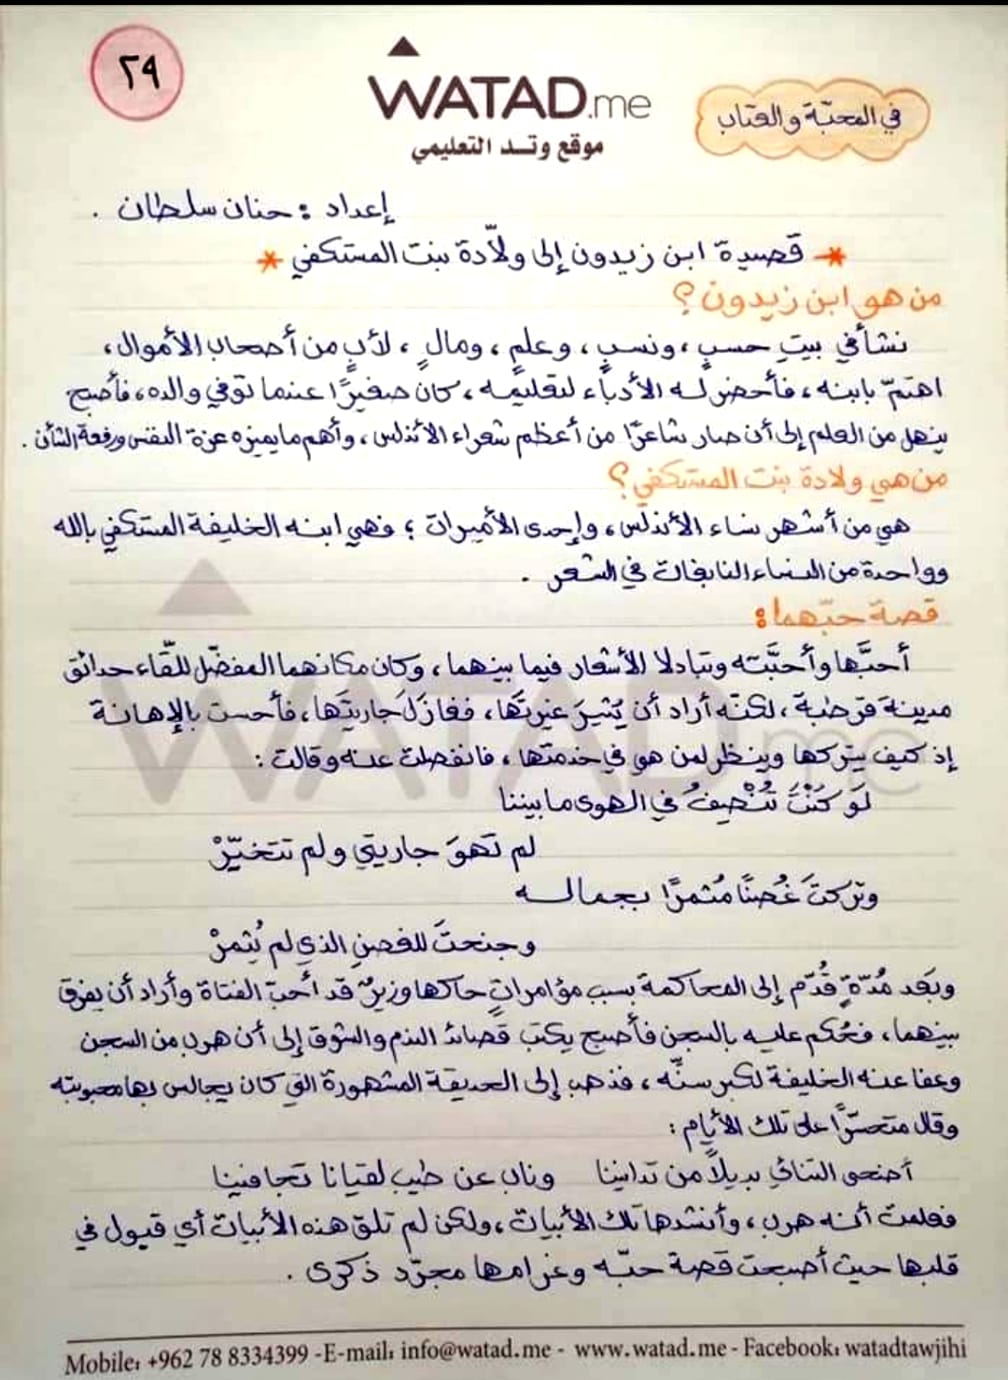 ٢٩
WATAD.me
موقع وتد التعليمي
في المحبّة والعتاب
إعداد : حنان سلطان .
* قصيدة ابن زيدون إلى ولّادة بنت المستكفي *
من هو ابن زيدون؟
نشأ في بيتِ حسبٍ ، ونسبٍ ، وعلمٍ ، ومالٍ ، لأبٍ من أصحاب الأموال ،
اهتمّ بابنه ، فأحضر له الأدباء لتعليمه ، كان صغيرًا عندما توفي والده ، فأصبح
ينهل من العلم إلى أن صار شاعرًا من أعظم شعراء الأندلس ، وأهم ما يميزه عزة النفس ورفعة الشأن .
من هي ولادة بنت المستكفي؟
هي من أشهر نساء الأندلس ، وإحدى الأميرات ؛ فهي ابنه الخليفة المستكفي بالله
وواحدة من النساء النابغات في الشعر .
قصة حبّهما :
أحبَّها وأحبَّته وتبادلا الأشعار فيما بينهما ، وكان مكانهما المفضّل للقّاء حدائق
مدينة قرطبة ، لكنّه أراد أن يُثيرَ غيرتَها ، فغازَلَ جاريتَها ، فأحست بالإهانة
إذ كيف يتركها وينظر لمن هو في خدمتها ، فانفصلت عنه وقالت :
لَو كُنْتَ تُنْصِفُ في الهوى ما بيننا
لم تهوَ جاريتي ولم تتخيّرْ
وتركتَ غُصنًا مُثمرًا بجماله
وجنحتَ للغصنِ الذي لم يُثمرْ
وبَعد مُدّةٍ قُدّم إلى المحاكمة بسبب مؤامراتٍ حاكها وزيرٌ قد أحبّ الفتاة وأراد أن يفرق
بينهما ، فحُكم عليه بالسجن فأصبح يكتب قصائد الندم والشوق إلى أن هرب من السجن
وعفا عنه الخليفة لكبر سنّه ، فذهب إلى الحديقة المشهورة التي كان يجالس بها محبوبته
وقال متحسّرًا على تلك الأيام :
أضحى التنائي بديلًا من تدانينا وناب عن طيب لقيانا تجافينا
فعلمت أنه هرب ، وأنشدها تلك الأبيات ، ولكن لم تلق هذه الأبيات أي قبول في
قلبها حيث أصبحت قصة حبّه وغرامها مجرّد ذكرى .
Mobile: +962 78 8334399 -E-mail: info@watad.me - www.watad.me - Facebook: watadtawjihi